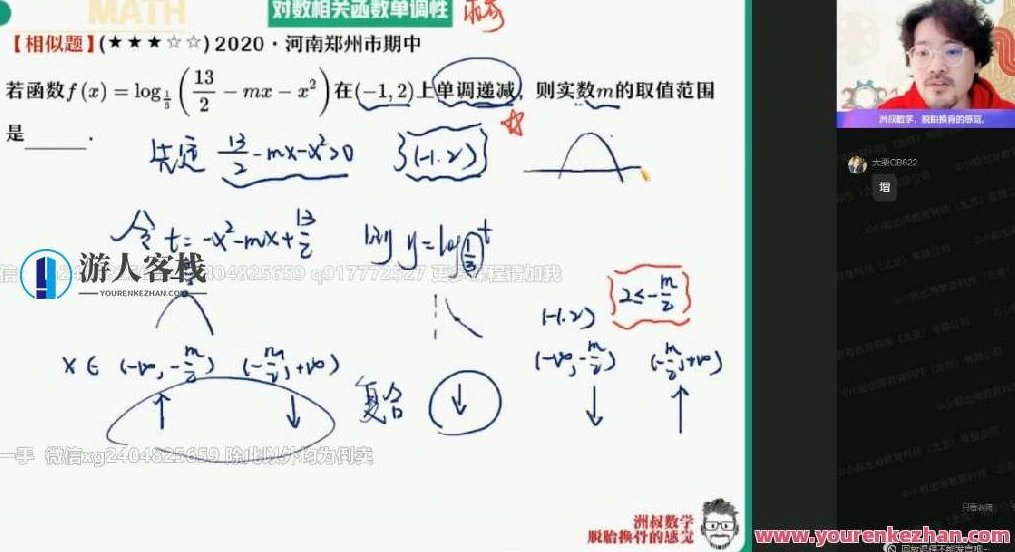 MATH
对数相关函数单调性
【相似题】(★★★☆☆) 2020·河南郑州市期中
若函数 f(x) = log_{1/3} (13/2 - mx - x²) 在(-1,2)上单调递减, 则实数m的取值范围
是______.
13/2 - mx - x² > 0 (-1,2)
令 t = -x² - mx + 13/2 则 y = log_{1/3} t
游人客栈
YOURENKEZHAN.COM
2404825659 q917772527 更多课程请加我
(-1,2) 2 ≤ -m/2
x ∈ (-∞, -m/2) (-m/2, +∞)
(-∞, -m/2) (-m/2, +∞)
↑ ↓ 复合 ↓ ↓ ↑
一手 微信xg2404825659 除此以外均为倒卖
洲叔数学
脱胎换骨的感觉
洲叔数学，脱胎换骨的感觉。
大栗CB622
增
只看老师
www.yourenkezhan.com